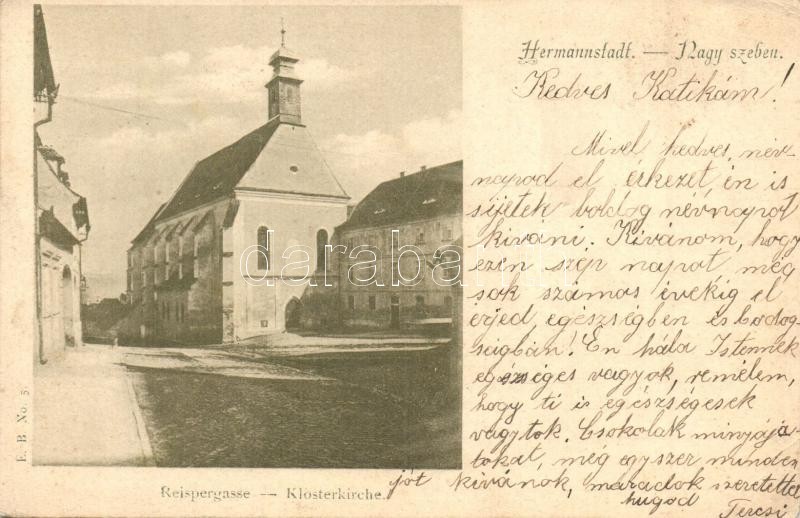 Hermannstadt. — Nagy szeben.
Kedves Katikám!
Mivel kedves név-
napod el érkezet, én is
sijetek boldog névnapot
kiváni. Kivánom, hogy
ezen szép napot, még
sok számos évekig el
érjed, egészségben és bodog-
ságban! Én hála Istennek
egészséges vagyok, remélem,
hogy ti is egészségesek
vagytok. Csokolak minyájá-
tokat, még egyszer minden
jót kivánok, maradok szeretettel
hugod Tercsi
E. B. No. 5.
Reispergasse — Klosterkirche.
darabanth